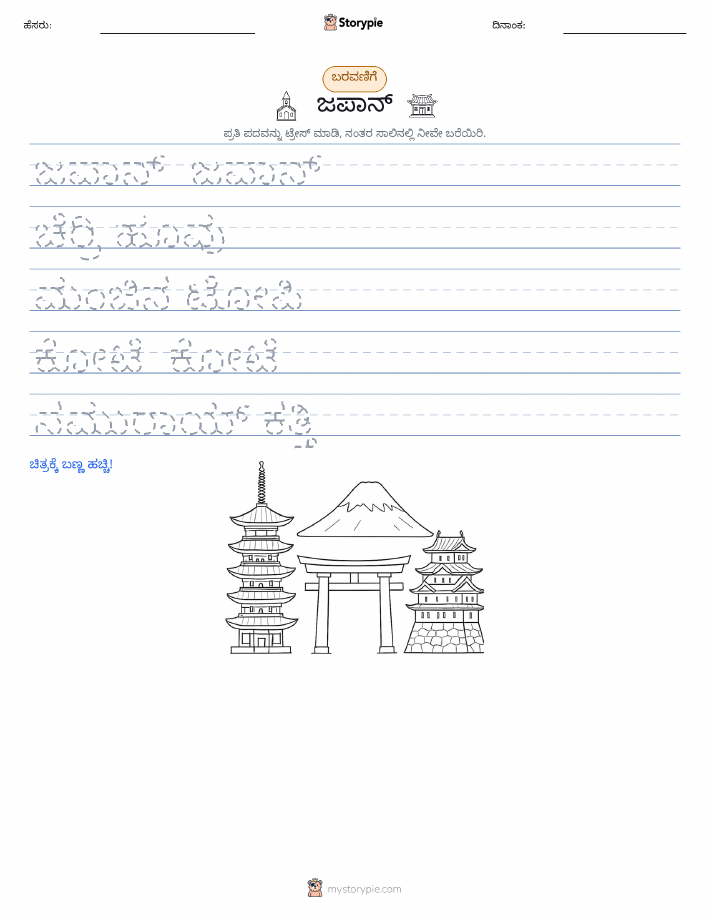 ಹೆಸರು:
Storypie
ದಿನಾಂಕ:
ಬರವಣಿಗೆ
ಜಪಾನ್
ಪ್ರತಿ ಪದವನ್ನು ಟ್ರೇಸ್ ಮಾಡಿ, ನಂತರ ಸಾಲಿನಲ್ಲಿ ನೀವೇ ಬರೆಯಿರಿ.
ಜಪಾನ್ ಜಪಾನ್
ಚೆರ್ರಿ ಹೂವು
ಮಂಚಿನ ಟೋಪಿ
ಕೋಟೆ ಕೋಟೆ
ಸಮುರಾಯ್ ಕತ್ತಿ
ಚಿತ್ರಕ್ಕೆ ಬಣ್ಣ ಹಚ್ಚಿ!
mystorypie.com